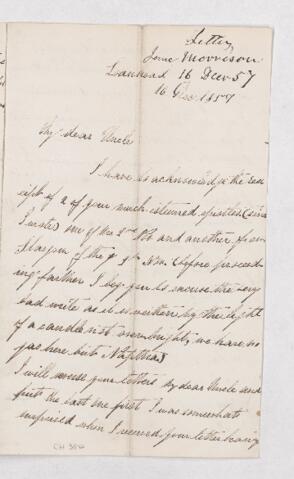 Letter
Jane Morrison
Loanhead 16 Decr 57
16 Dec 1857
My dear Uncle
I have to acknowledge the rec
eipt of 2 of your much esteemed epistles since
I wrote one of the 2nd Feb and another from
Glasgow of the 9th Nov. before proceed
ing farther I beg you to excuse the very
bad write as it is written by the light
of a candle not over bright, we have no
gas here but Naptha
I will answer your letters my dear Uncle and
first the last one first I was somewhat
surprised when I received your letter being
CH 386